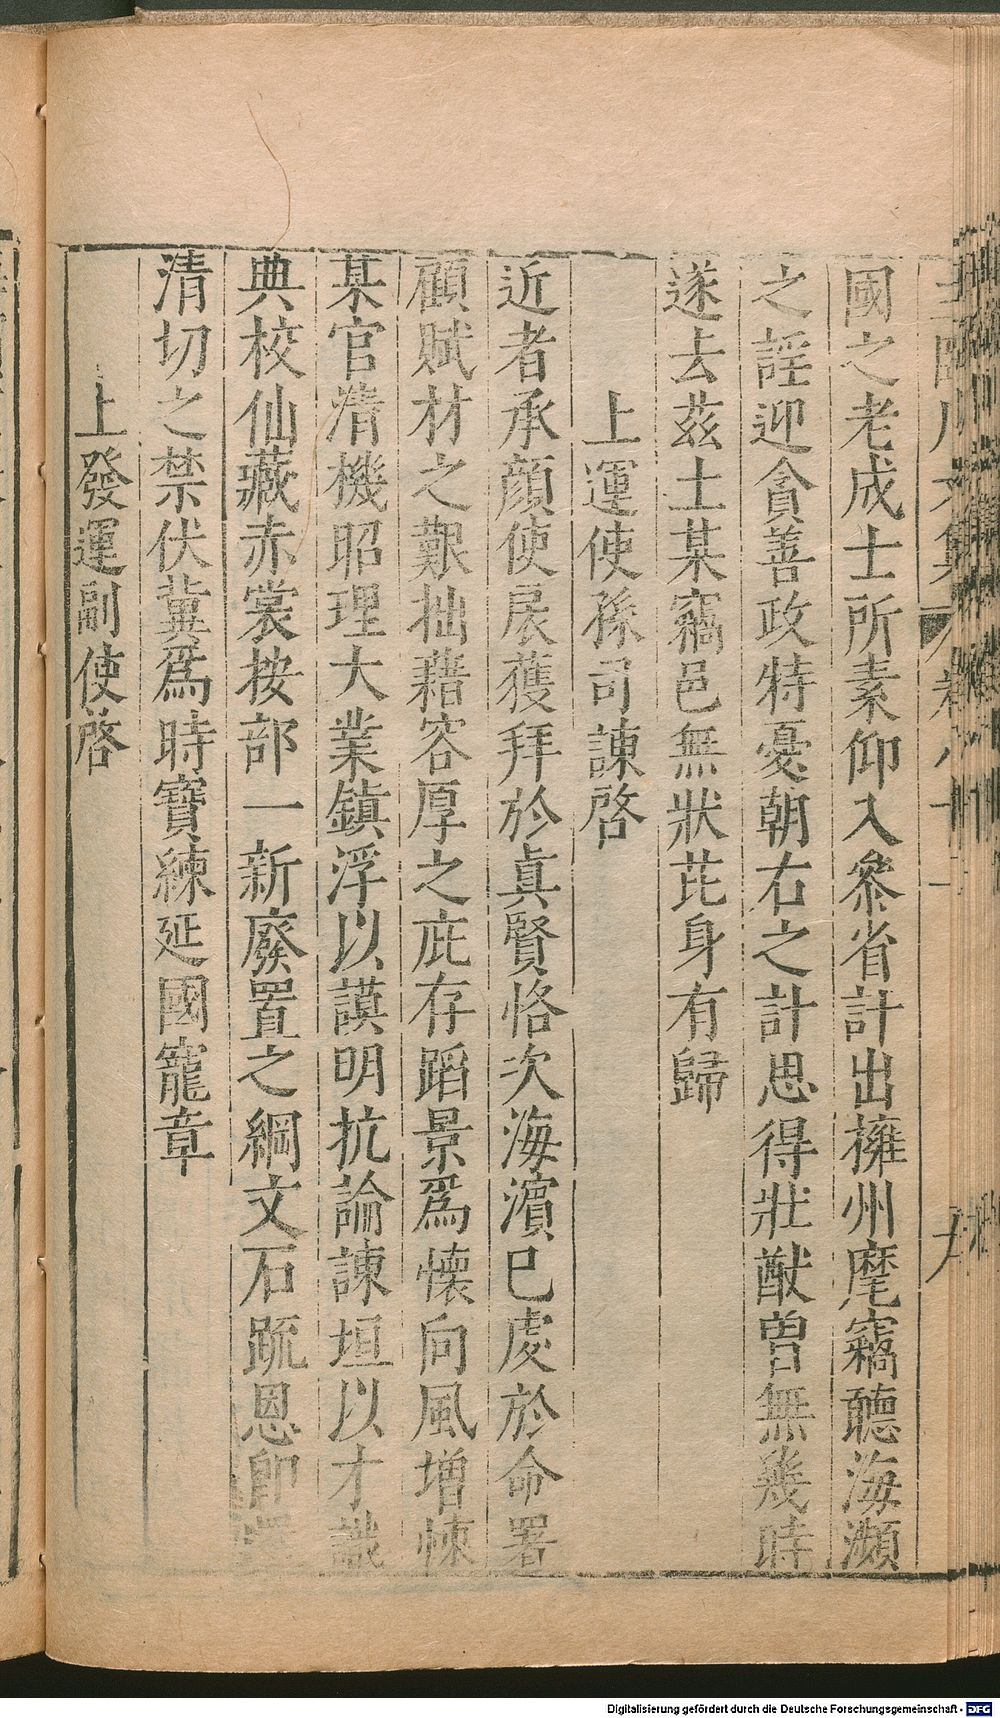 國之老成士所素仰入參省計出擁州麾竊聽海瀕
之謡迎貪善政特憂朝右之計思得壯猷曽無幾時
遂去茲土某竊邑無狀芘身有歸
上運使孫司諫啓
近者承顔使扆獲拜於真賢恪次海濵已處於命署
顧賦材之艱拙藉容厚之庇存蹈景爲懐向風增悚
某官清機昭理大業鎮浮以謨明抗論諫垣以才識
典校仙藏赤裳按部一新廢置之綱文石䟽恩卽
清切之禁伏冀爲時寶練延國寵章
上發運副使啓
Digitalisierung gefördert durch die Deutsche Forschungsgemeinschaft - DFG